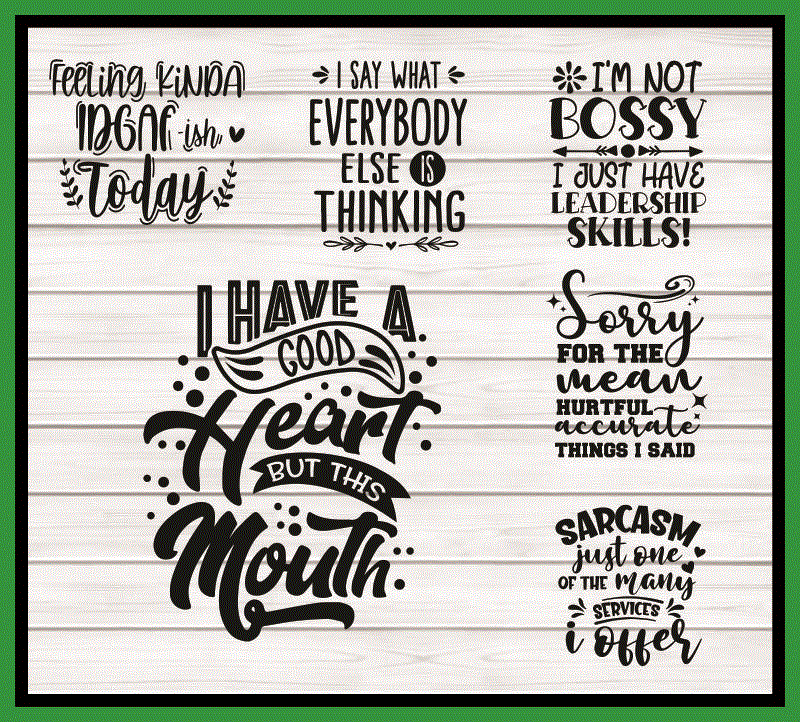 Feeling KINDA
IDGAF-ish
Today
I SAY WHAT
EVERYBODY
ELSE IS
THINKING
I'M NOT
BOSSY
I JUST HAVE
LEADERSHIP
SKILLS!
I HAVE A
GOOD
Heart
BUT THIS
Mouth
Sorry
FOR THE
mean
HURTFUL
accurate
THINGS I SAID
SARCASM
just one
OF THE many
SERVICES
i offer